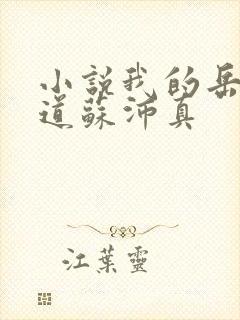 小説我的岳
道蘇沛真
江葉靈